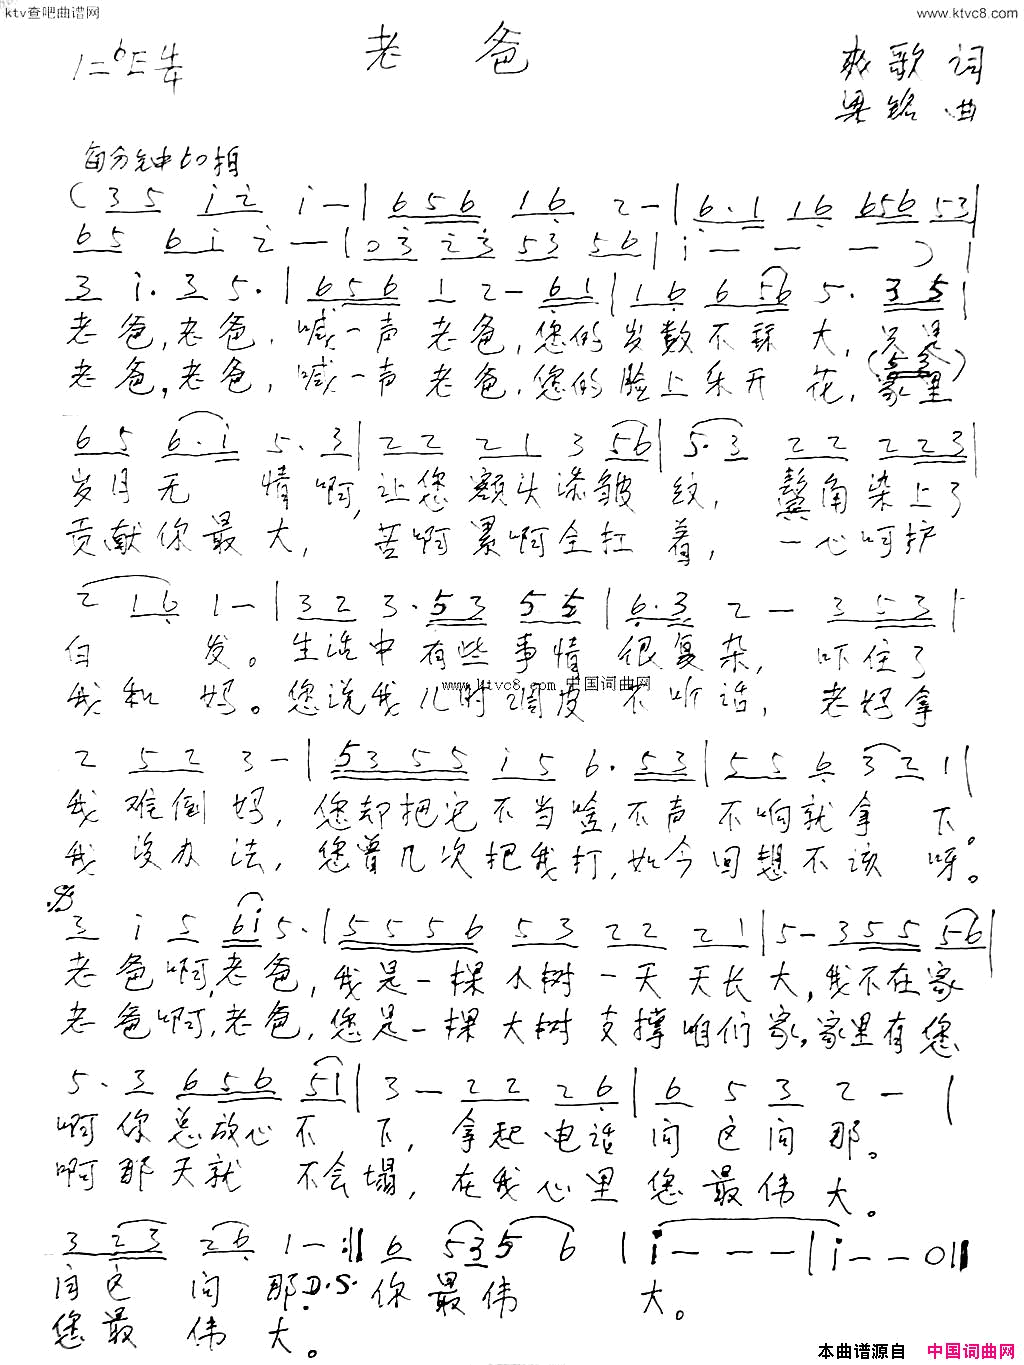 ktv查吧曲谱网
www.ktvc8.com
老 爸
1=bE 4/4
爽歌 词
梁铭 曲
每分钟60拍
( 3 5 i 2 i - | 6 5 6 1 6 2 - | 6 · 1 1 6 6 5 6 5 3 |
6 5 6 i 2 - | 0 3 2 3 5 3 5 6 | i - - - ) |
3 i · 3 5 · | 6 5 6 1 2 - 6 1 | 1 6 6 5 6 5 · 3 5 |
老爸,老爸,喊一声老爸,您的岁数不算大,只是
老爸,老爸,喊一声老爸,您的脸上乐开花,家里
6 5 6 · i 5 · 3 | 2 2 2 1 3 5 6 | 5 · 3 2 2 2 2 3 |
岁月无情啊,让您额头添皱纹,鬓角染上了
贡献你最大,苦啊累啊全扛着,一心呵护
2 1 6 1 - | 3 2 3 · 5 3 5 5 | 6 · 3 2 - 3 5 3 |
白发。生活中有些事情很复杂,吓住了
我和妈。您说我儿时调皮不听话,老妈拿
www.ktvc8.com 中国词曲网
2 5 2 3 - | 5 3 5 5 i 5 6 · 5 3 | 5 5 6 3 2 1 |
我难倒妈,您却把它不当啥,不声不响就拿下。
我没办法,您曾几次把我打,如今回想不该呀。
3 i 5 6 i 5 · | 5 5 5 6 5 3 2 2 2 1 | 5 - 3 5 5 5 6 |
老爸啊,老爸,我是一棵小树一天天长大,我不在家
老爸啊,老爸,您是一棵大树支撑咱们家,家里有您
5 · 3 6 5 6 5 1 | 3 - 2 2 2 6 | 6 5 3 2 - |
啊你总放心不下,拿起电话问这问那。
啊那天就不会塌,在我心里您最伟大。
3 2 3 2 6 1 - :|| 6 5 3 5 6 | i - - - | i - - 0 ||
问这问那D.S.你最伟大。
您最伟大。
本曲谱源自 中国词曲网